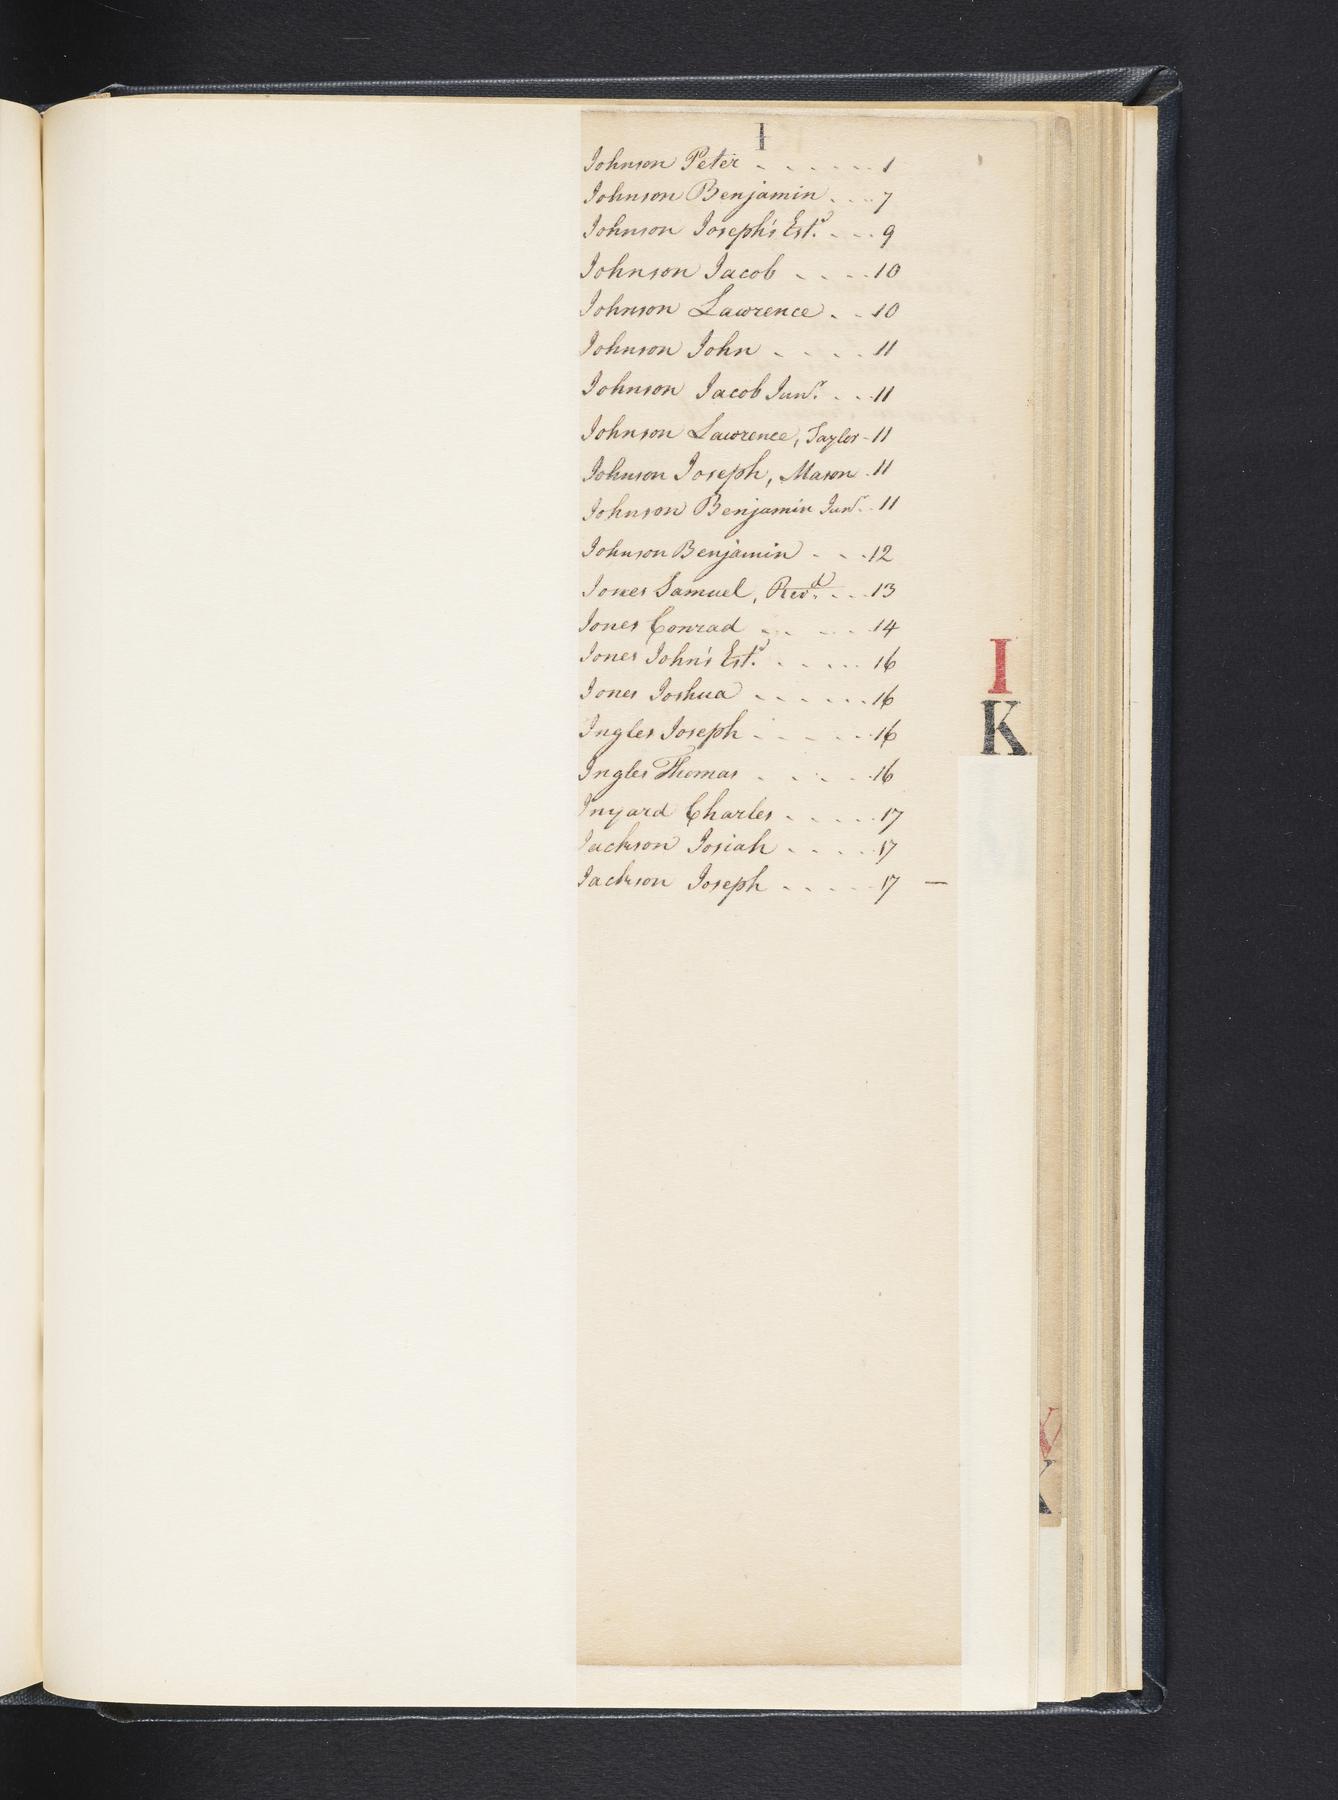 I
Johnson Peter - - - - - - 1
Johnson Benjamin - - - 7
Johnson Joseph's Est.ᵉ - - - 9
Johnson Jacob - - - - 10
Johnson Lawrence - - 10
Johnson John - - - - 11
Johnson Jacob Junʳ. - - - 11
Johnson Lawrence, Taylor - 11
Johnson Joseph, Mason - 11
Johnson Benjamin Junʳ. - 11
Johnson Benjamin - - - 12
Jones Samuel, Revᵈ. - - - 13
Jones Conrad - - - - - 14
Jones John's Est.ᵉ - - - - - 16
Jones Joshua - - - - - - 16
Ingles Joseph - - - - - 16
Ingles Thomas - - - - - 16
Inyard Charles - - - - - 17
Jackson Josiah - - - - 17
Jackson Joseph - - - - - 17 —
I
K